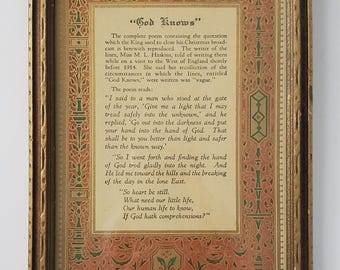 "God Knows"
The complete poem containing the quotation
which the King used to close his Christmas broad-
cast is herewith reproduced. The writer of the
lines, Miss M. L. Haskins, told of writing them
while on a visit to the West of England shortly
before 1914. She said her recollection of the
circumstances in which the lines, entitled
"God Knows," were written was "vague."
The poem reads:
"I said to a man who stood at the gate
of the year, 'Give me a light that I may
tread safely into the unknown,' and he
replied, 'Go out into the darkness and put
your hand into the hand of God. That
shall be to you better than light and safer
than the known way.'
"So I went forth and finding the hand
of God trod gladly into the night. And
He led me toward the hills and the breaking
of the day in the lone East.
"So heart be still.
What need our little life,
Our human life to know,
If God hath comprehension?"